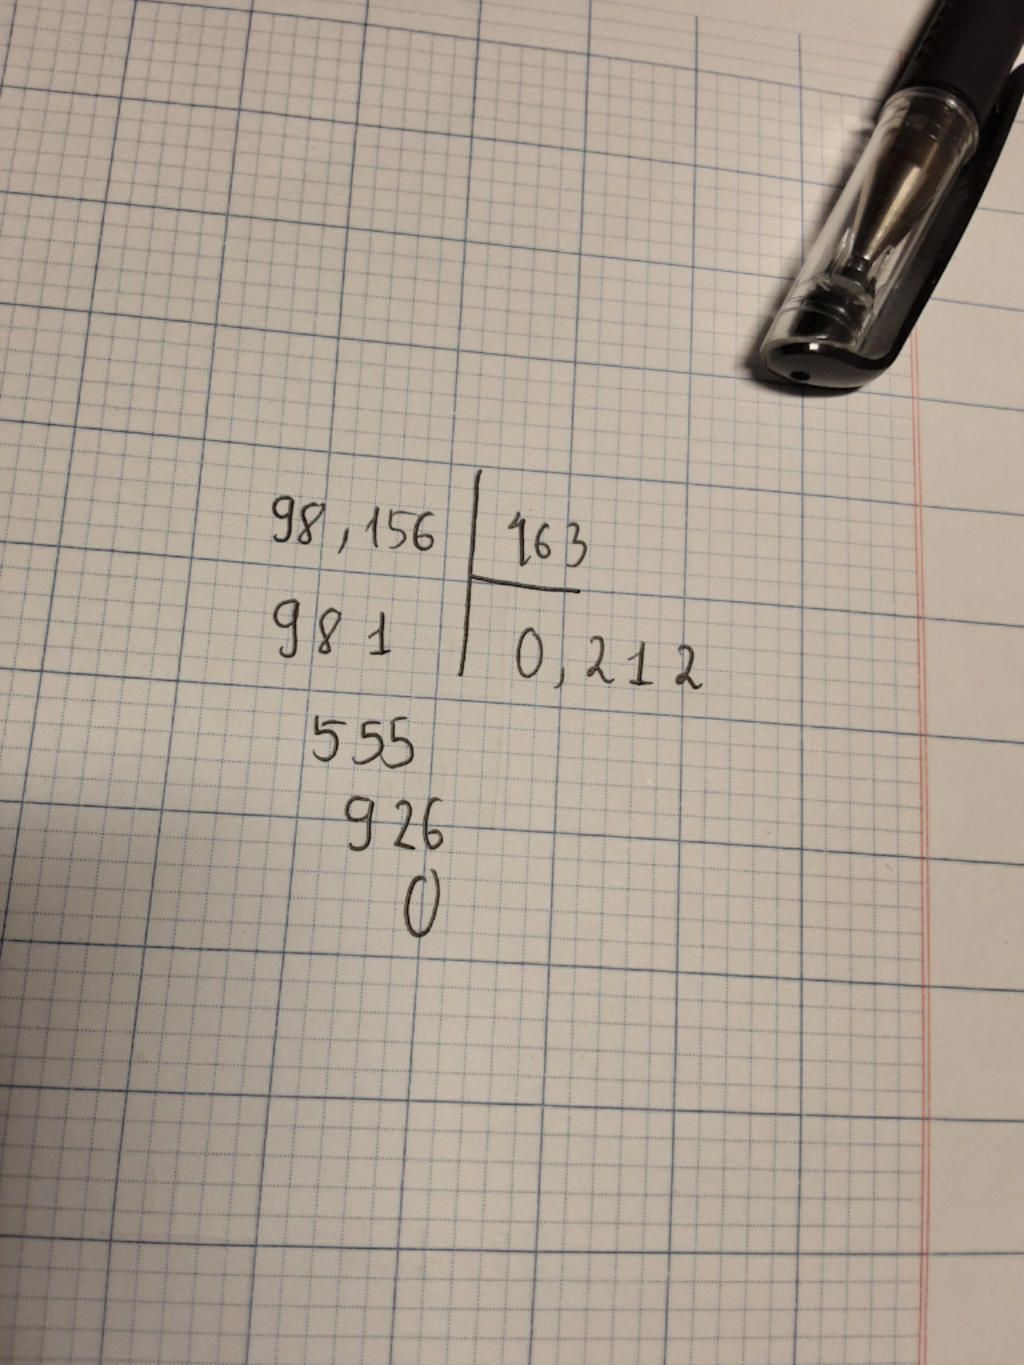 98,156 | 463
981 | 0,212
555
926
0